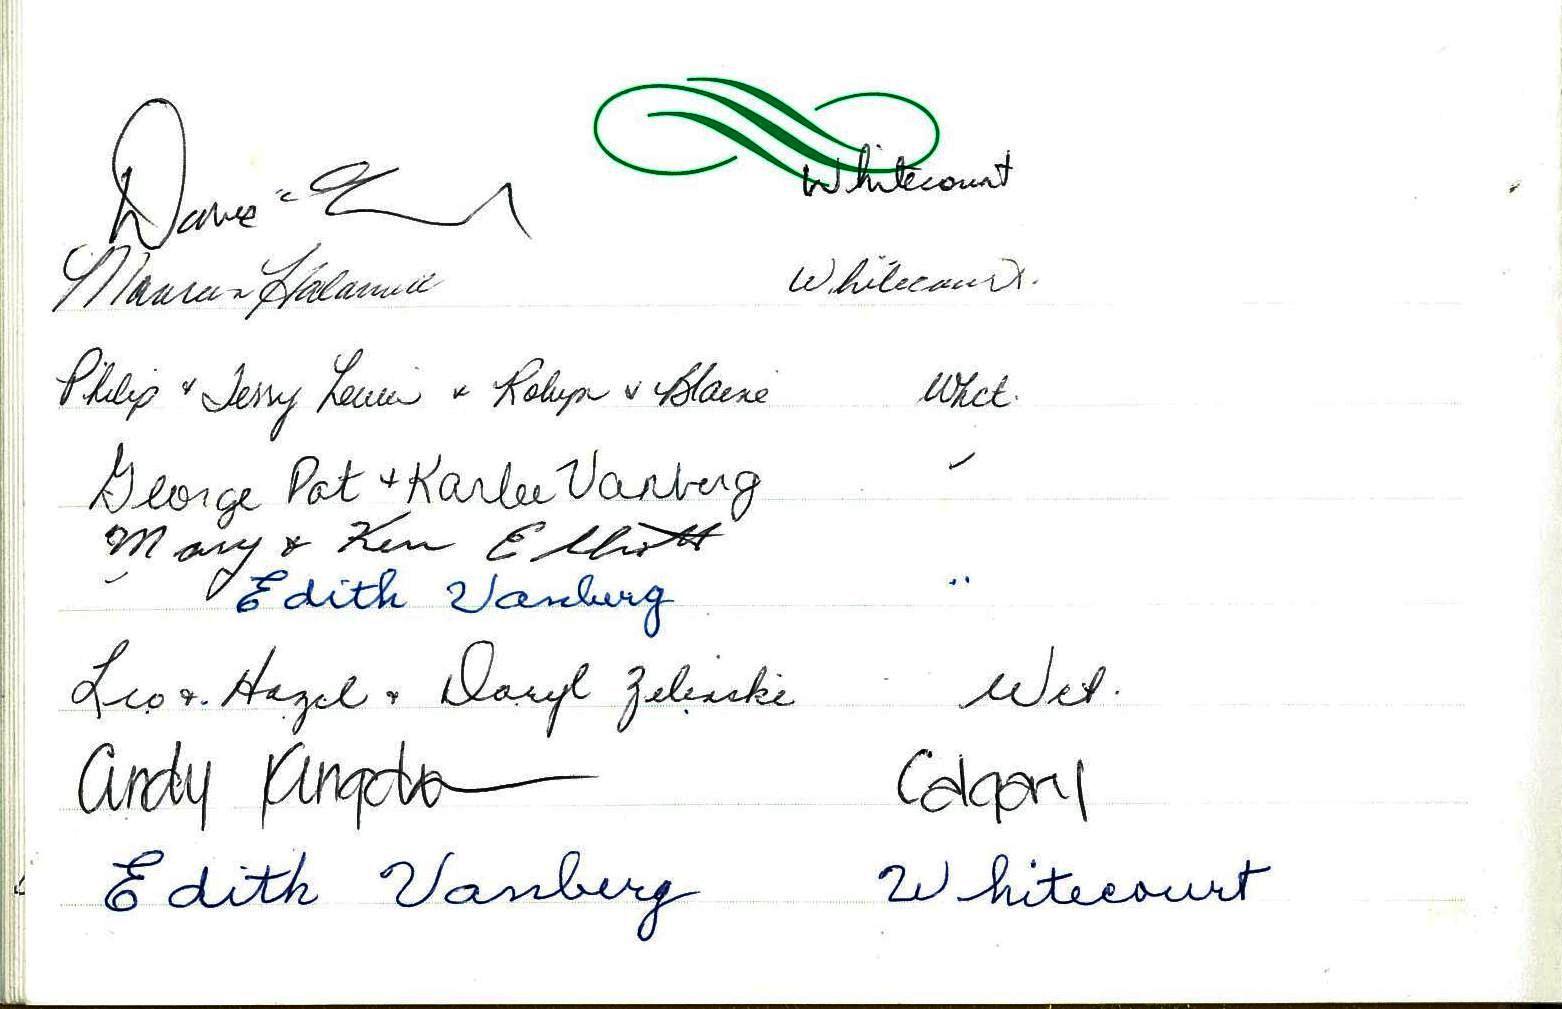 Dave Whitecourt
Whitecourt.
Philip & Terry Lewis & Robyn & Blaine Whct.
George Pat + Karlee Vanberg
Mary & Ken Elliott
Edith Vanberg "
Leo & Hazel & Daryl Zelinski Wct.
Andy Calgary
Edith Vanberg Whitecourt